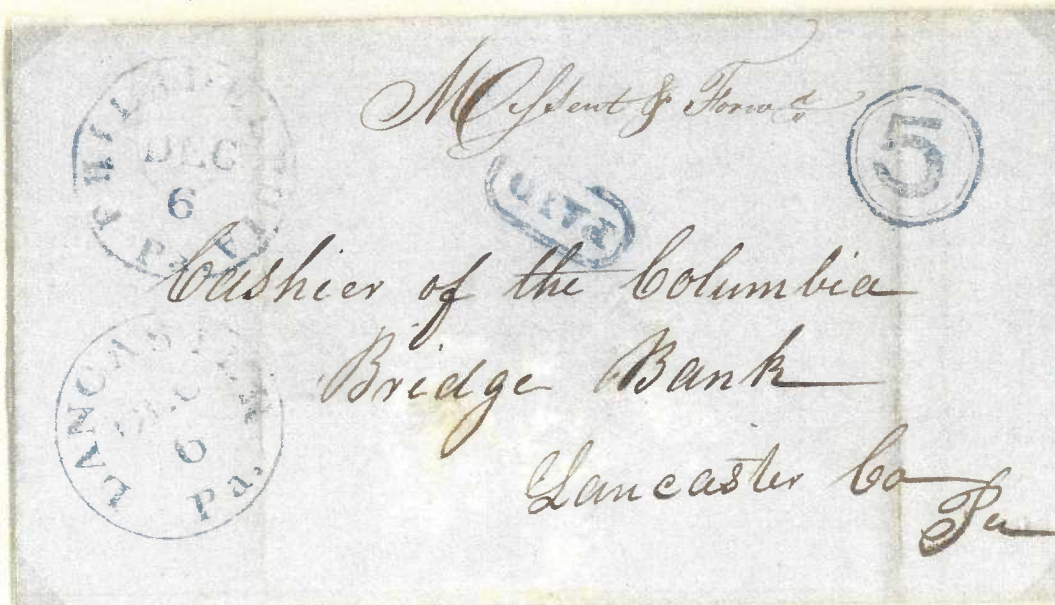 PHILADELPHIA Pa.
DEC
6
Missent & Forwd
5
PAID
Cashier of the Columbia
Bridge Bank
Lancaster Co
Pa
LANCASTER Pa.
DEC
6